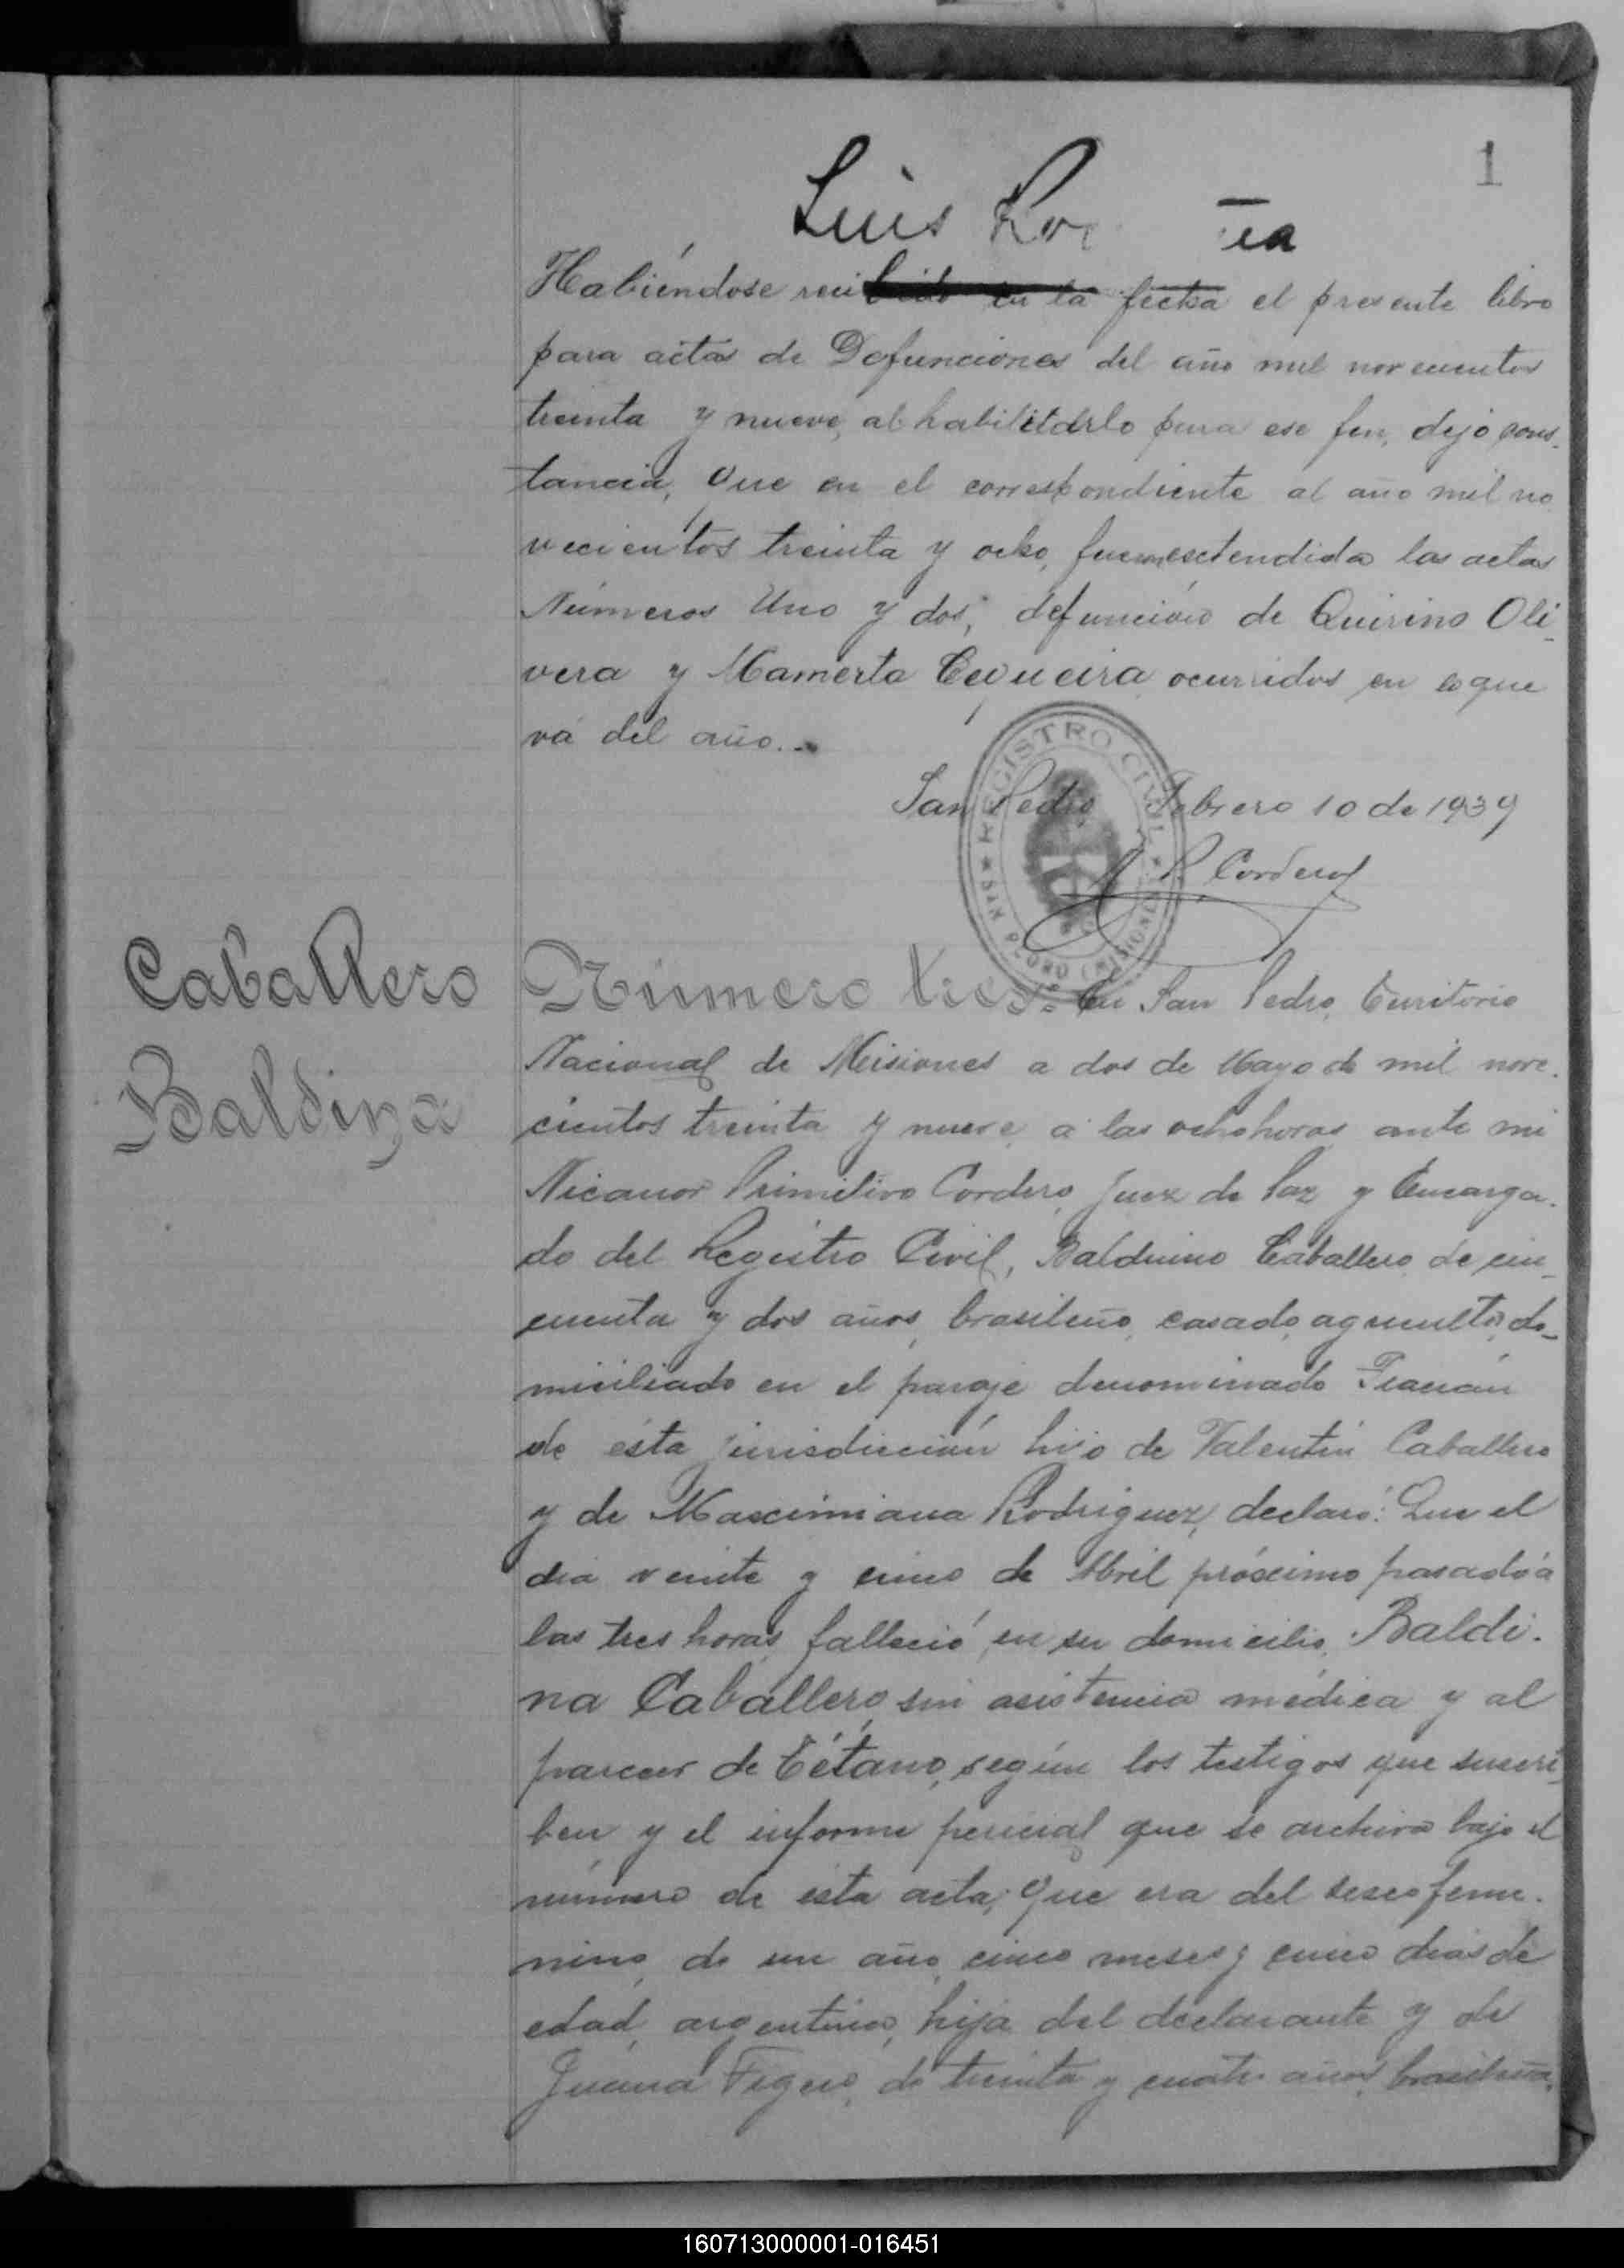 1
Luis
Habiéndose recibido en la fecha el presente libro
para actas de Defunciones del año mil novecientos
treinta y nueve, al habilitarlo para ese fin, dejo cons-
tancia, que en el correspondiente al año mil no
vecientos treinta y ocho, fueron esctendida las actas
Números Uno y dos, defunción de Quirino Oli-
vera y Mamerta Cequeira ocurridos en lo que
vá del año.-
REGISTRO CIVIL
SAN PEDRO (MISIONES)
San Pedro, Febrero 10 de 1939
P. Cordero
Caballero
Baldina
Número tres: En San Pedro, Territorio
Nacional de Misiones a dos de Mayo de mil nove-
cientos treinta y nueve, a las ocho horas ante mi
Nicanor Primitivo Cordero, Juez de Paz y Encarga-
do del Registro Civil, Balduino Caballero, de cin-
cuenta y dos años, brasileño, casado, agricultor, do-
miciliado en el paraje denominado
de ésta jurisdicción hijo de Valentin Caballero
y de Mascimiana Rodriguez, declaró: Que el
dia veinte y cinco de Abril próscimo pasado a
las tres horas, falleció en su domicilio, Baldi-
na Caballero, sin asistencia médica y al
parecer de Tétano, según los testigos que suscri-
ben y el informe pericial que se archiva bajo el
número de ésta acta; que era del secso feme-
nino, de un año, cinco meses y cinco dias de
edad, argentina, hija del declarante y de
Juana de treinta y cuatro años, brasileña,
160713000001-016451